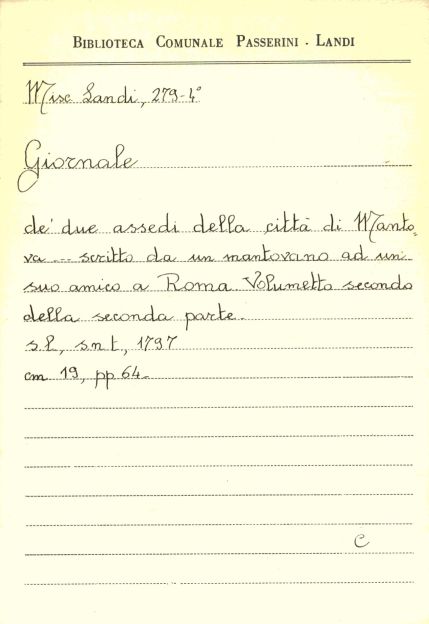 BIBLIOTECA COMUNALE PASSERINI - LANDI
Misc Landi, 279-4°
Giornale
de' due assedi della città di Manto-
va --- scritto da un mantovano ad un
suo amico a Roma Volumetto secondo
della seconda parte.
s.l., s.n.t., 1797
cm 19, pp 64.
C